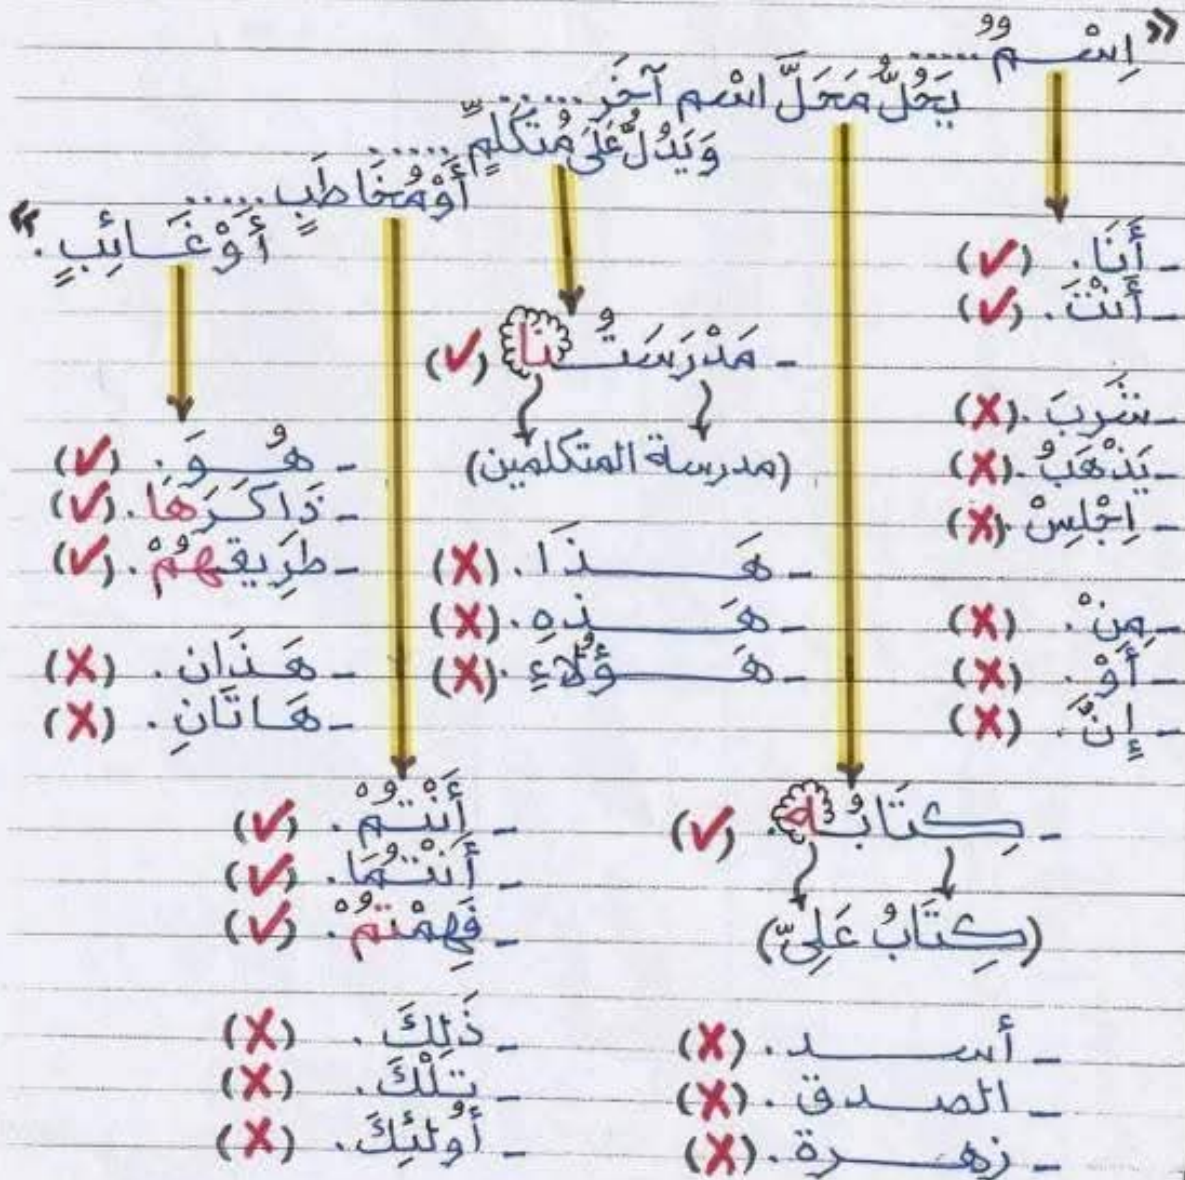 « اِسْمٌ .....
يَحُلُّ مَحَلَّ اسْم آخَر .....
وَيَدُلُّ عَلَى مُتَكَلِّمٍ .....
أَوْ مُخَاطَبٍ .....
أَوْ غَائِبٍ . »
- أَنَا. (✓)
- أَنْتَ. (✓)
- شَرِبَ. (X)
- يَذْهَبُ. (X)
- اِجْلِسْ. (X)
- مِنْ. (X)
- أَوْ. (X)
- إِنَّ. (X)
- كِتَابُه. (✓)
(كِتَابُ عَلِيّ)
- أسد. (X)
- الصدق. (X)
- زهرة. (X)
- مَدْرَسَتُنا (✓)
(مدرسة المتكلمين)
- هَذَا. (X)
- هَذِهِ. (X)
- هَؤُلَاءِ. (X)
- أَنْتُمْ. (✓)
- أَنْتُمَا. (✓)
- فَهِمْتُمْ. (✓)
- ذَلِكَ. (X)
- تِلْكَ. (X)
- أُولَئِكَ. (X)
- هُوَ. (✓)
- ذَاكَرَهَا. (✓)
- طَرِيقهُمْ. (✓)
- هَذَان. (X)
- هَاتَانِ. (X)